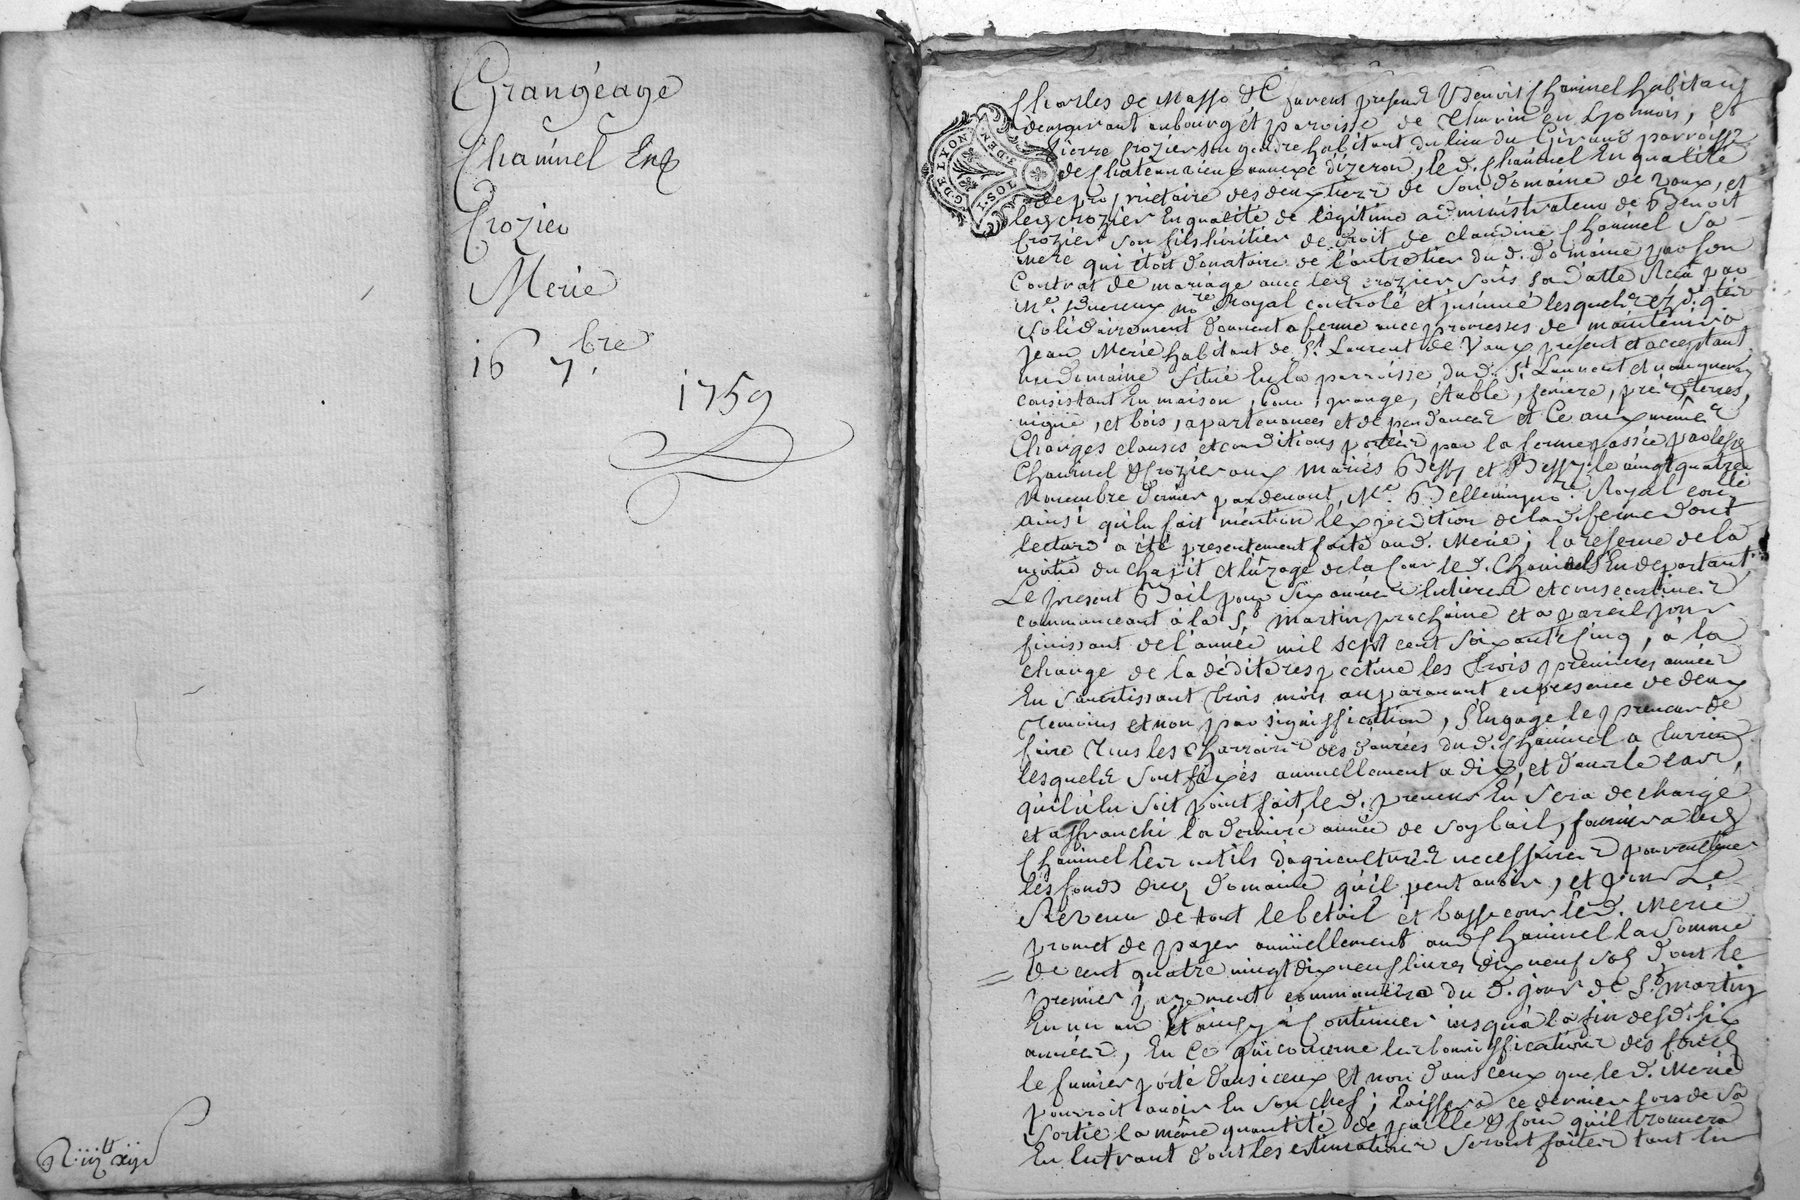 Grangéage
Chamuel Et
Crozier
Merie
16 7.bre
1759
R iiij tt xij s
G. DE LYON
3. DEN.
I. SOL
Charles de Masso &c furent presens Benoit Chamuel habitant
demeurant au bourg et paroisse de Thurin en Lyonnois, et
Pierre Crozier son gendre habitant du lieu du Giraud parroisse
de Chateauvieux annexe d'izeron, le d. Chamuel En qualité
de proprietaire des deux tiers de son domaine de Vaux, et
led Crozier En qualité de legitime administrateur de Benoit
Crozier son fils héritier de droit de claudine Chamuel sa
mere qui étoit donataire de l'autre tier du d. domaine par son
Contrat de mariage avec led crozier sous sa datte Recû par
Me. no.re Royal controlé et insinué lesquels ez d. q.tés
Solidairement donnent a ferme avec promesses de maintenir a
jean Merie habitant de St. Laurent de Vaux present et acceptant
un domaine Situé En la parroisse du d. St. Laurent et
consistant En maison, Cour, grange, étable, feniere, prés, terres,
vigne, et bois, apartenances et dependances et Ce aux mêmes
Charges clauses et conditions portées par la ferme passée par lesd
Chamuel & Crozier aux mariés Bessy et Bessy le vingt quatre
Novembre dernier par devant, Me. no.re Royal
ainsi qu'en fait mention l'expedition de lad. ferme dont
lecture a été presentement faite aud. Merie; la reserve de la
moitié du chapit et l'uzage de la Cour le d. Chamuel S'En departant
Le present Bail pour Six années Entieres et consecutives
commanceant à la St. martin prochaine et a pareil jour
finissant de l'année mil sept cent soixante cinq, à la
charge de la dédite respective les trois premieres années
En S'avertissant trois mois auparavant en presence de deux
temoins et non par signiffication, S'Engage le preneur de
faire tous les charrois des danrées du d. Chamuel a Turrin
lesquels sont fixés annuellement a dix, et dans le cas,
qu'il n'en soit point fait, le d. preneur En sera dechargé
et affranchi la derniere année de son bail, fournira led
Chamuel les outils d'agriculture necessaires pour cultiver
les fonds dud domaine qu'il peut avoir, et pour Le
Revenu de tout le betail et basse cour le d. Merie
promet de payer annüellement aud Chamuel la somme
de cent quatre vingt dix neuf livres dix neuf sols dont le
premier payement commancera du d. jour de St. martin
En un an Et ainsy à Continuer jusqu'à la fin desd. six
années, En Ce qui concerne les bonniffications des fonds
le fumier porté dans iceux et non dans ceux que le d. Merie
pourroit avoir En son chef; laissera ce dernier lors de sa
sortie la même quantité de paille & foin qu'il trouvera
En Entrant dont les estimations seront faites tant En